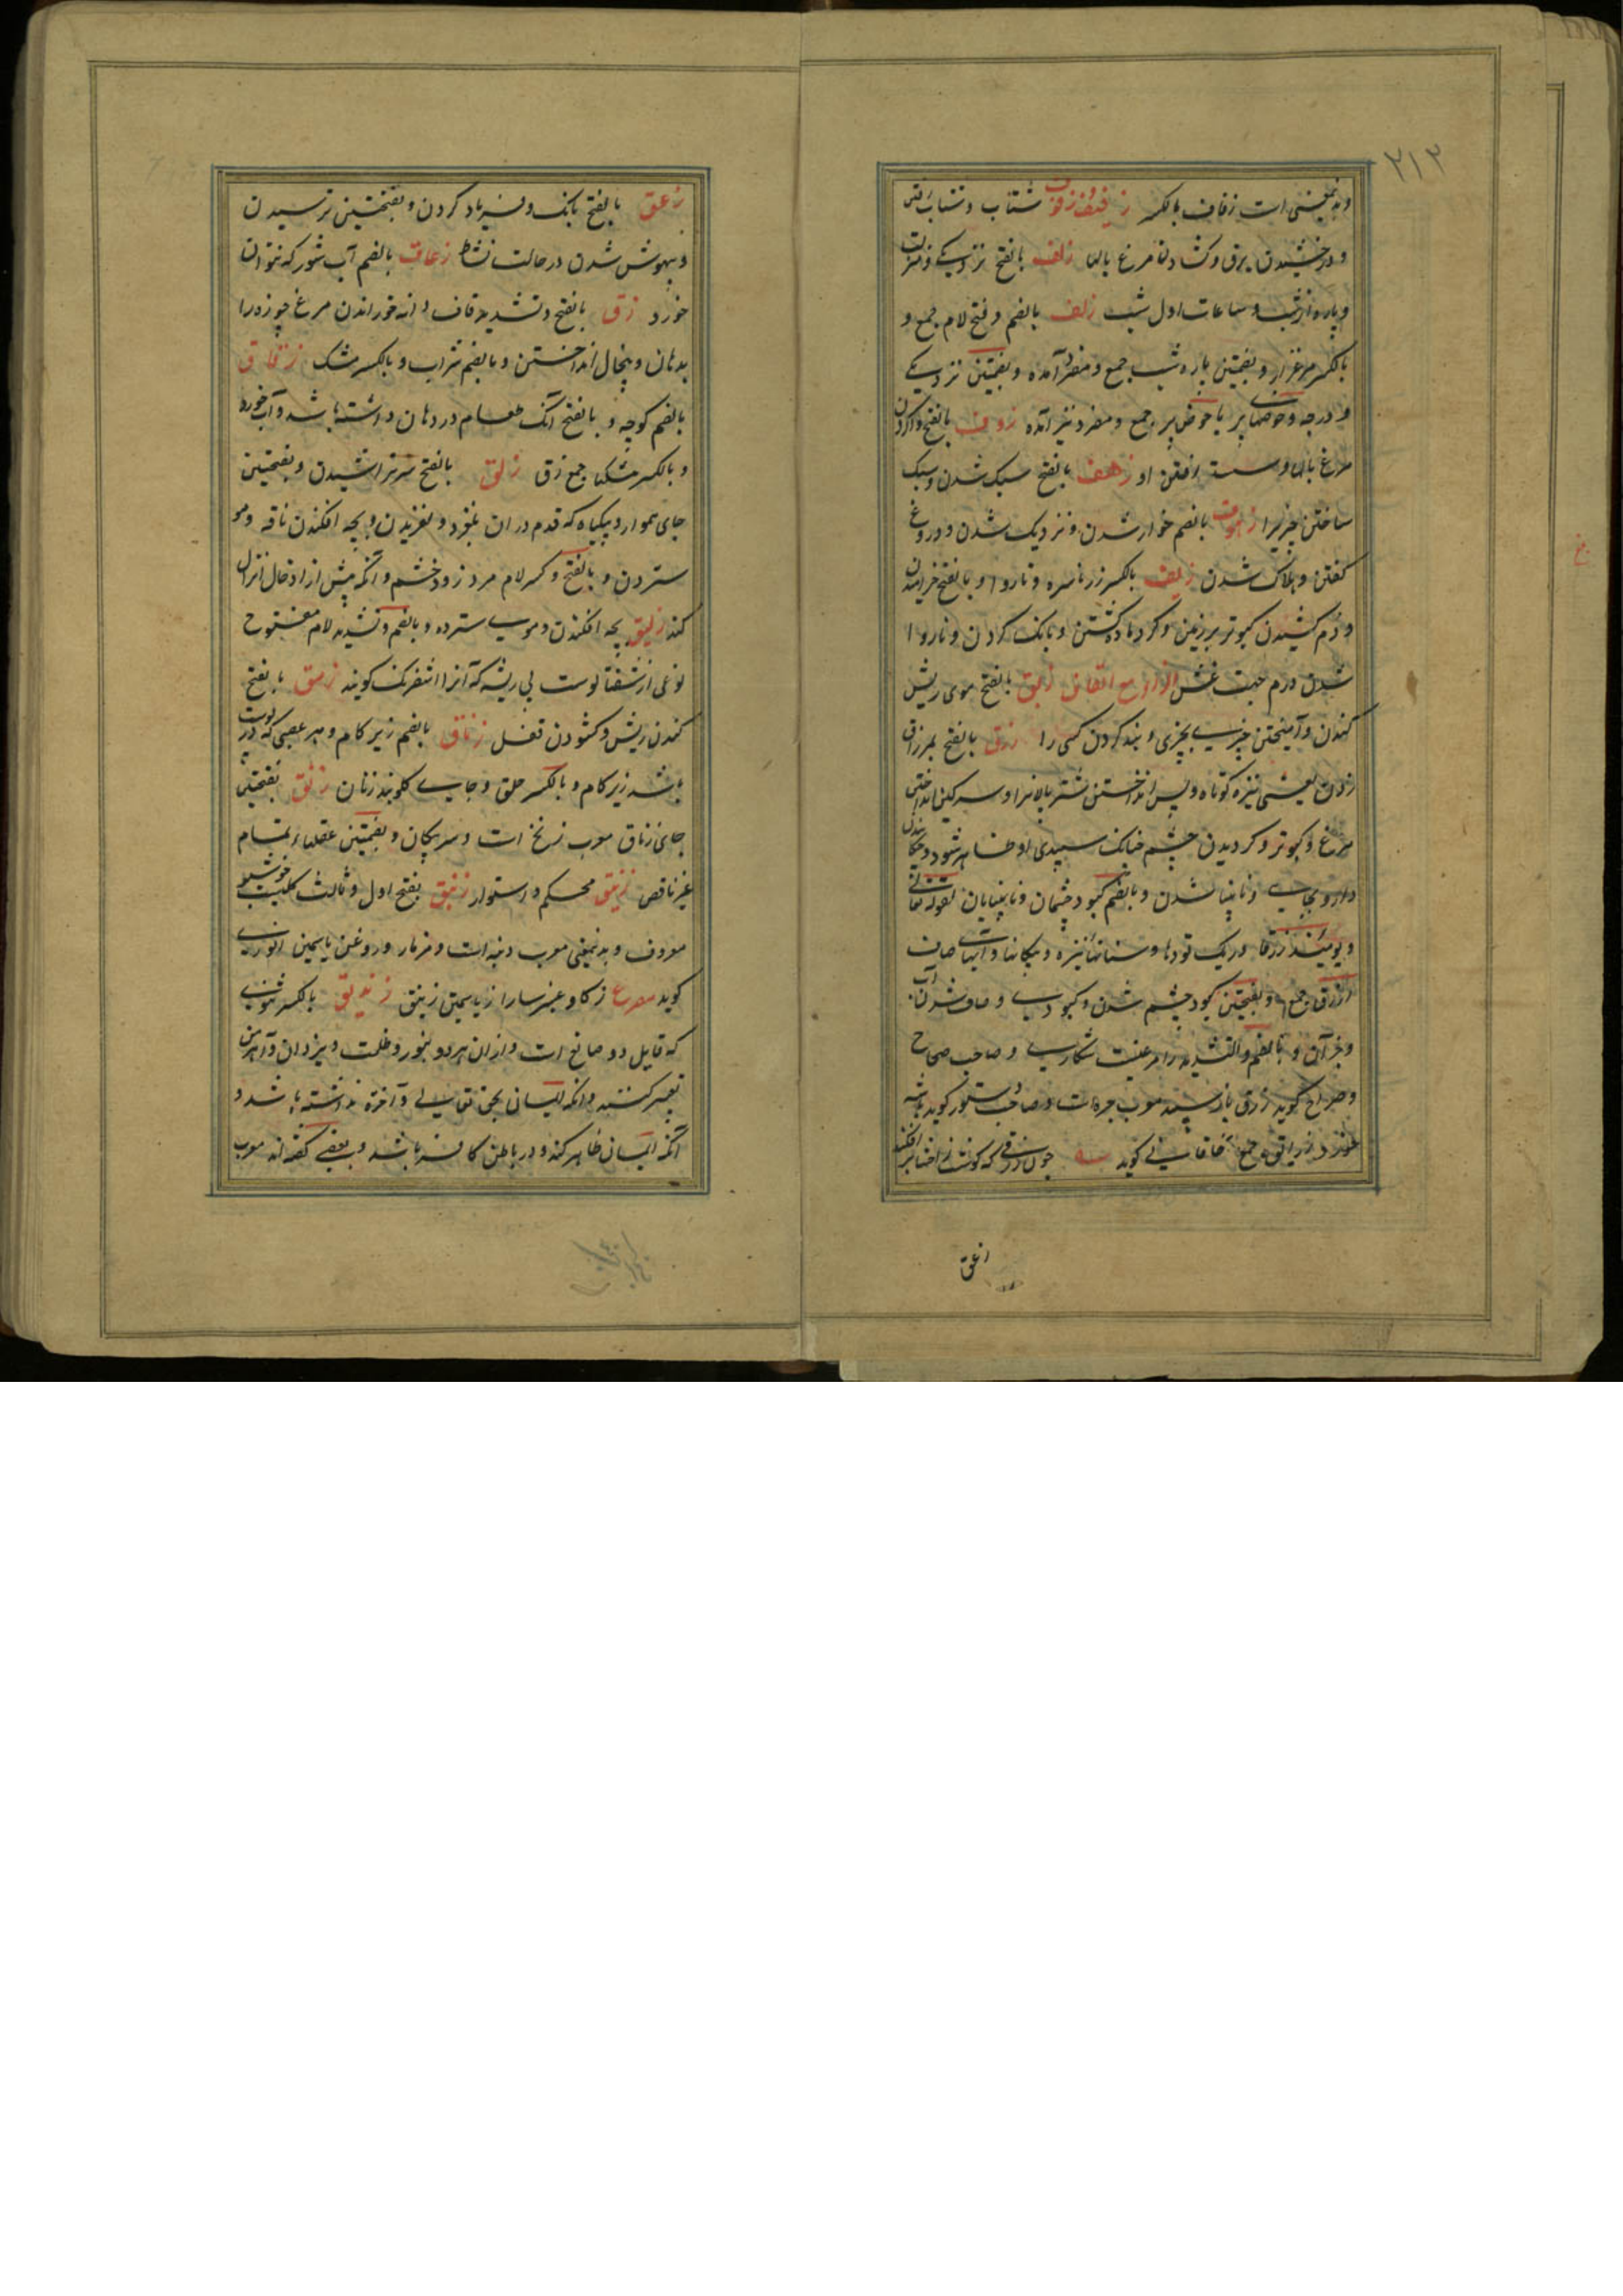 ۲۱۲
وبدینمعنی است زفاف بالکسر زفیف و زفوف شتاب و شتاب رفتن
و درخشیدن برق و گشادن مرغ بالها زلف بالفتح نزدیکی و منزلت
و پاره از شب و ساعات اول شب زلف بالضم و فتح لام جمع و
بالکسر مرغزار و بضمتین پاره شب جمع و مفرد آمده و بضمتین نزدیکی
و درجه و حوضهای پر یا حوض پر جمع و مفرد نیز آمده زوف بالفتح واکردن
مرغ بالها و سست افتن او زهف بالفتح سبک شدن و سبک
ساختن چیزیرا زهوف بالضم خوار شدن و نزدیک شدن و دروغ
گفتن و هلاک شدن زیف بالکسر زر ناسره و ناروا و بالفتح خرامیدن
و دم کشیدن کبوتر بر زمین و گرد ماده گشتن و بانک کردن و ناروا
شدن درم جهت غش الزاء مع القاف زبق بالفتح موی ریش
کندن و آمیختن چیزی بچیزی و بند کردن کسی را زرق بالفتح بمزراق
زدن یعنی نیزه کوتاه و پس انداختن شتر پالانرا و سرکین انداختن
مرغ و کبوتر و کردیدن چشم چنانک سپیدی او ظاهر شود و چکانیدن
دارو بجایی و نابینا شدن و بالضم کبود چشمان و نابینایان لقوله تعالی
و یومئذ زرقا و ریک تودها و سنانهای نیزه و پیکانها و آبهای صاف
ازرق جمع و بفتحتین کبود چشم شدن و کبودی و صاف شدن آب
و جز آن و بالضم والتشدید را مرغیست شکاری و صاحب صحاح
و صراح گوید زرق باز سپید معرب جره است و صاحب دستور گوید باشه
زراریق جمع خاقانی گوید چون زرقی که گوشت ز احشا بر افکند
زعق
زعق بالفتح بانک و فریاد کردن و بفتحتین ترسیدن
و بیهوش شدن در حالت نشاط زعاق بالضم آب شور که نتوان
خورد زق بالفتح و تشدید قاف دانه خوراندن مرغ چوزه را
بدهان و پیخال انداختن و بالضم شراب و بالکسر مشک زقاق
بالضم کوچه و بالفتح آنک طعام در دهان داشته باشد و آب خورد
و بالکسر مشکها جمع زق زلق بالفتح سر تراشیدن و بفتحتین
جای هموار و بیکیاه که قدم در ان بلغزد و لغزیدن و بچه افکندن ناقه و مو
ستردن و بالفتح و کسر لام مرد زود خشم و آنکه پیش از ادخال انزال
کند زلیق بچه افکندن و موی سترده و بالضم و تشدید لام مفتوح
نوعی از شفتالوست بی ریشه که آنرا شفرنک گویند زمق بالفتح
کندن ریش و گشودن قفل زناق بالضم زیر کام و هر عصبی که در پوست
باشد زیر کام و بالکسر حلق و جای گلوبند زنان زنق بفتحتین
جای زناق معرب زنخ است و سر پیکان و بضمتین عقلهاء تمام
غیر ناقص زنیق محکم و استوار زنبق بفتح اول و ثالث گلیست خوشبو
معروف و بدینمعنی معرب دنبه است و مزمار و روغن یاسمین انوری
گوید مصرع ز کاو عنبر سارا ز یاسمین زنبق زندیق بالکسر ثنوی
که قایل دو صانع است و از ان هر دو بنور و ظلمت و یزدان و اهرمن
تعبیر کنند و آنکه ایمان بحق تعالی و آخرة نداشته باشد و
آنکه ایمان ظاهر کند و در باطن کافر باشد و بعضی گفته‌اند معرب